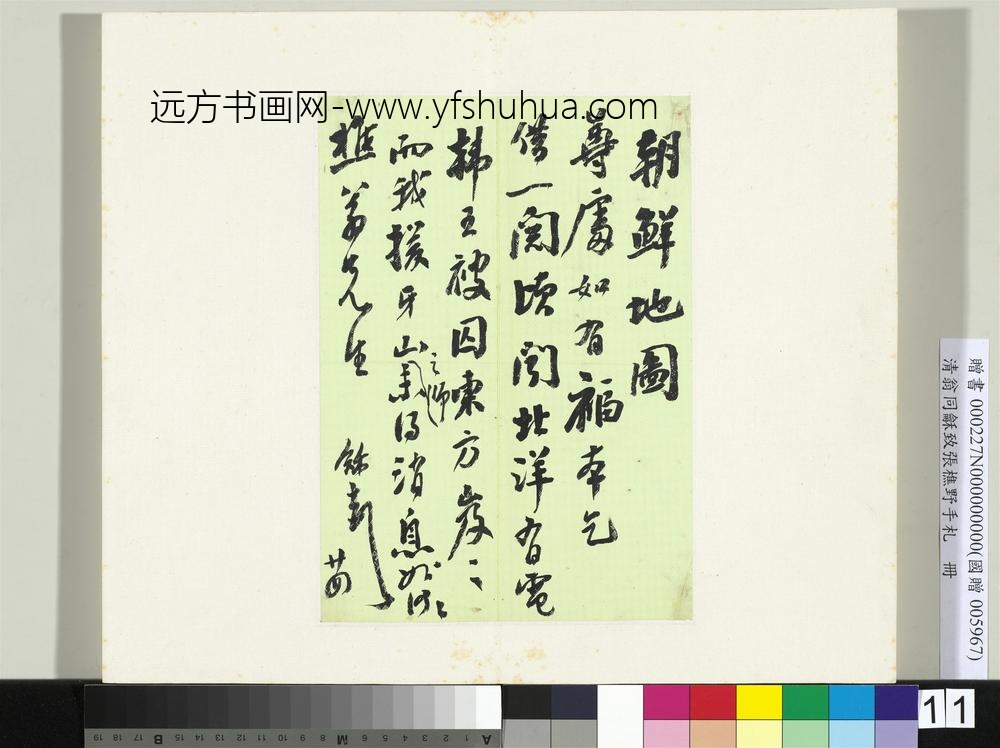 远方书画网-www.yfshuhua.com
朝鮮地圖
尊處如有福本乞
借一閱頃聞北洋有電
韓王被囚東方岌〻
而我援牙山之師得消息如何
樵翁先生
龢頓
廿四
贈書 000227N000000000(國贈 005967)
清翁同龢致張樵野手札 冊
11
19 18 17 16 15 B 12 11 10 9 8 M 6 5 4 3 2 1 A